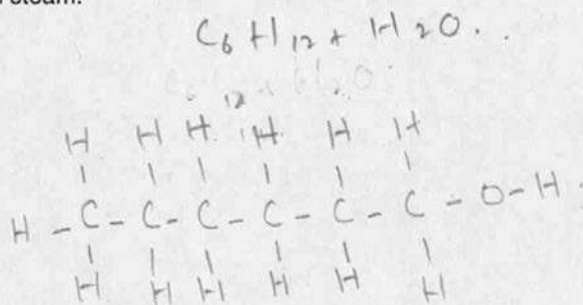 steam.
C6H12 + H2O..
12
H H H H H H
H - C - C - C - C - C - C - O - H.
H H H H H H